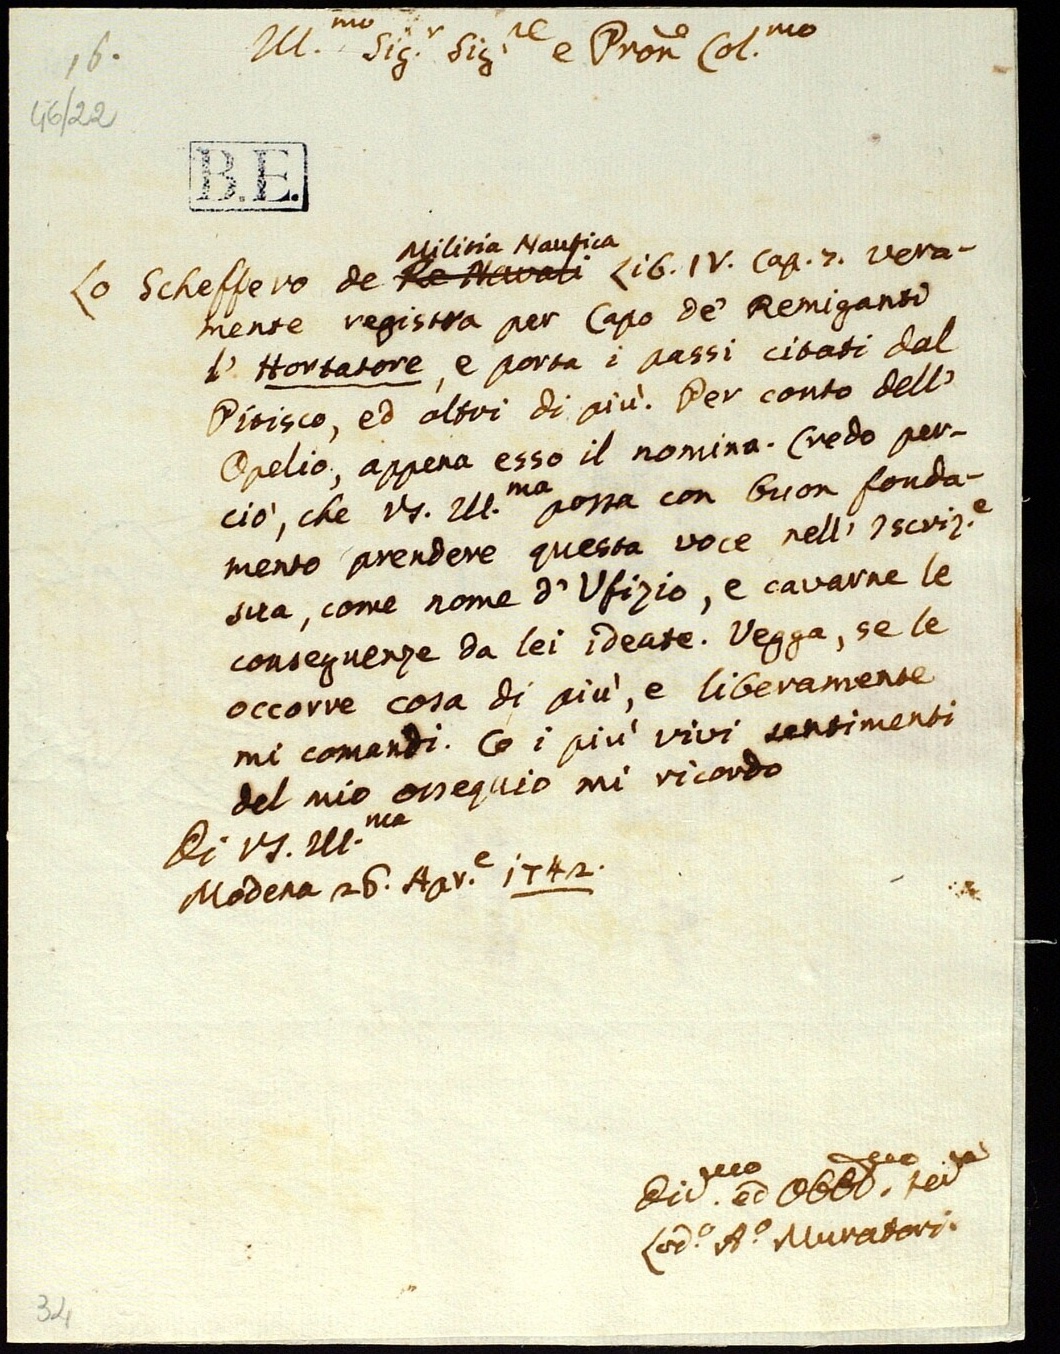 16.
46/22
Ill.mo Sig.r Sig.re e Pron Col.mo
B.E.
Militia Nautica
Lo Scheffero de Re Navali Lib. IV. Cap. 7. vera-
mente registra per Capo de' Remiganti
l' Hortatore, e porta i passi citati dal
Pitisco, ed altri di più. Per conto dell'
Opelio, appena esso il nomina. Credo per-
ciò, che VS. Ill.ma possa con buon fonda-
mento prendere questa voce nell' Iscriz.e
sua, come nome d' Ufizio, e cavarne le
conseguenze da lei ideate. Vegga, se le
occorre cosa di più, e liberamente
mi comandi. Co i più vivi sentimenti
del mio ossequio mi ricordo
Di VS. Ill.ma
Modena 26. Apr.e 1742.
Div.mo ed Obbl.mo
Lod.o A.o Muratori.
34